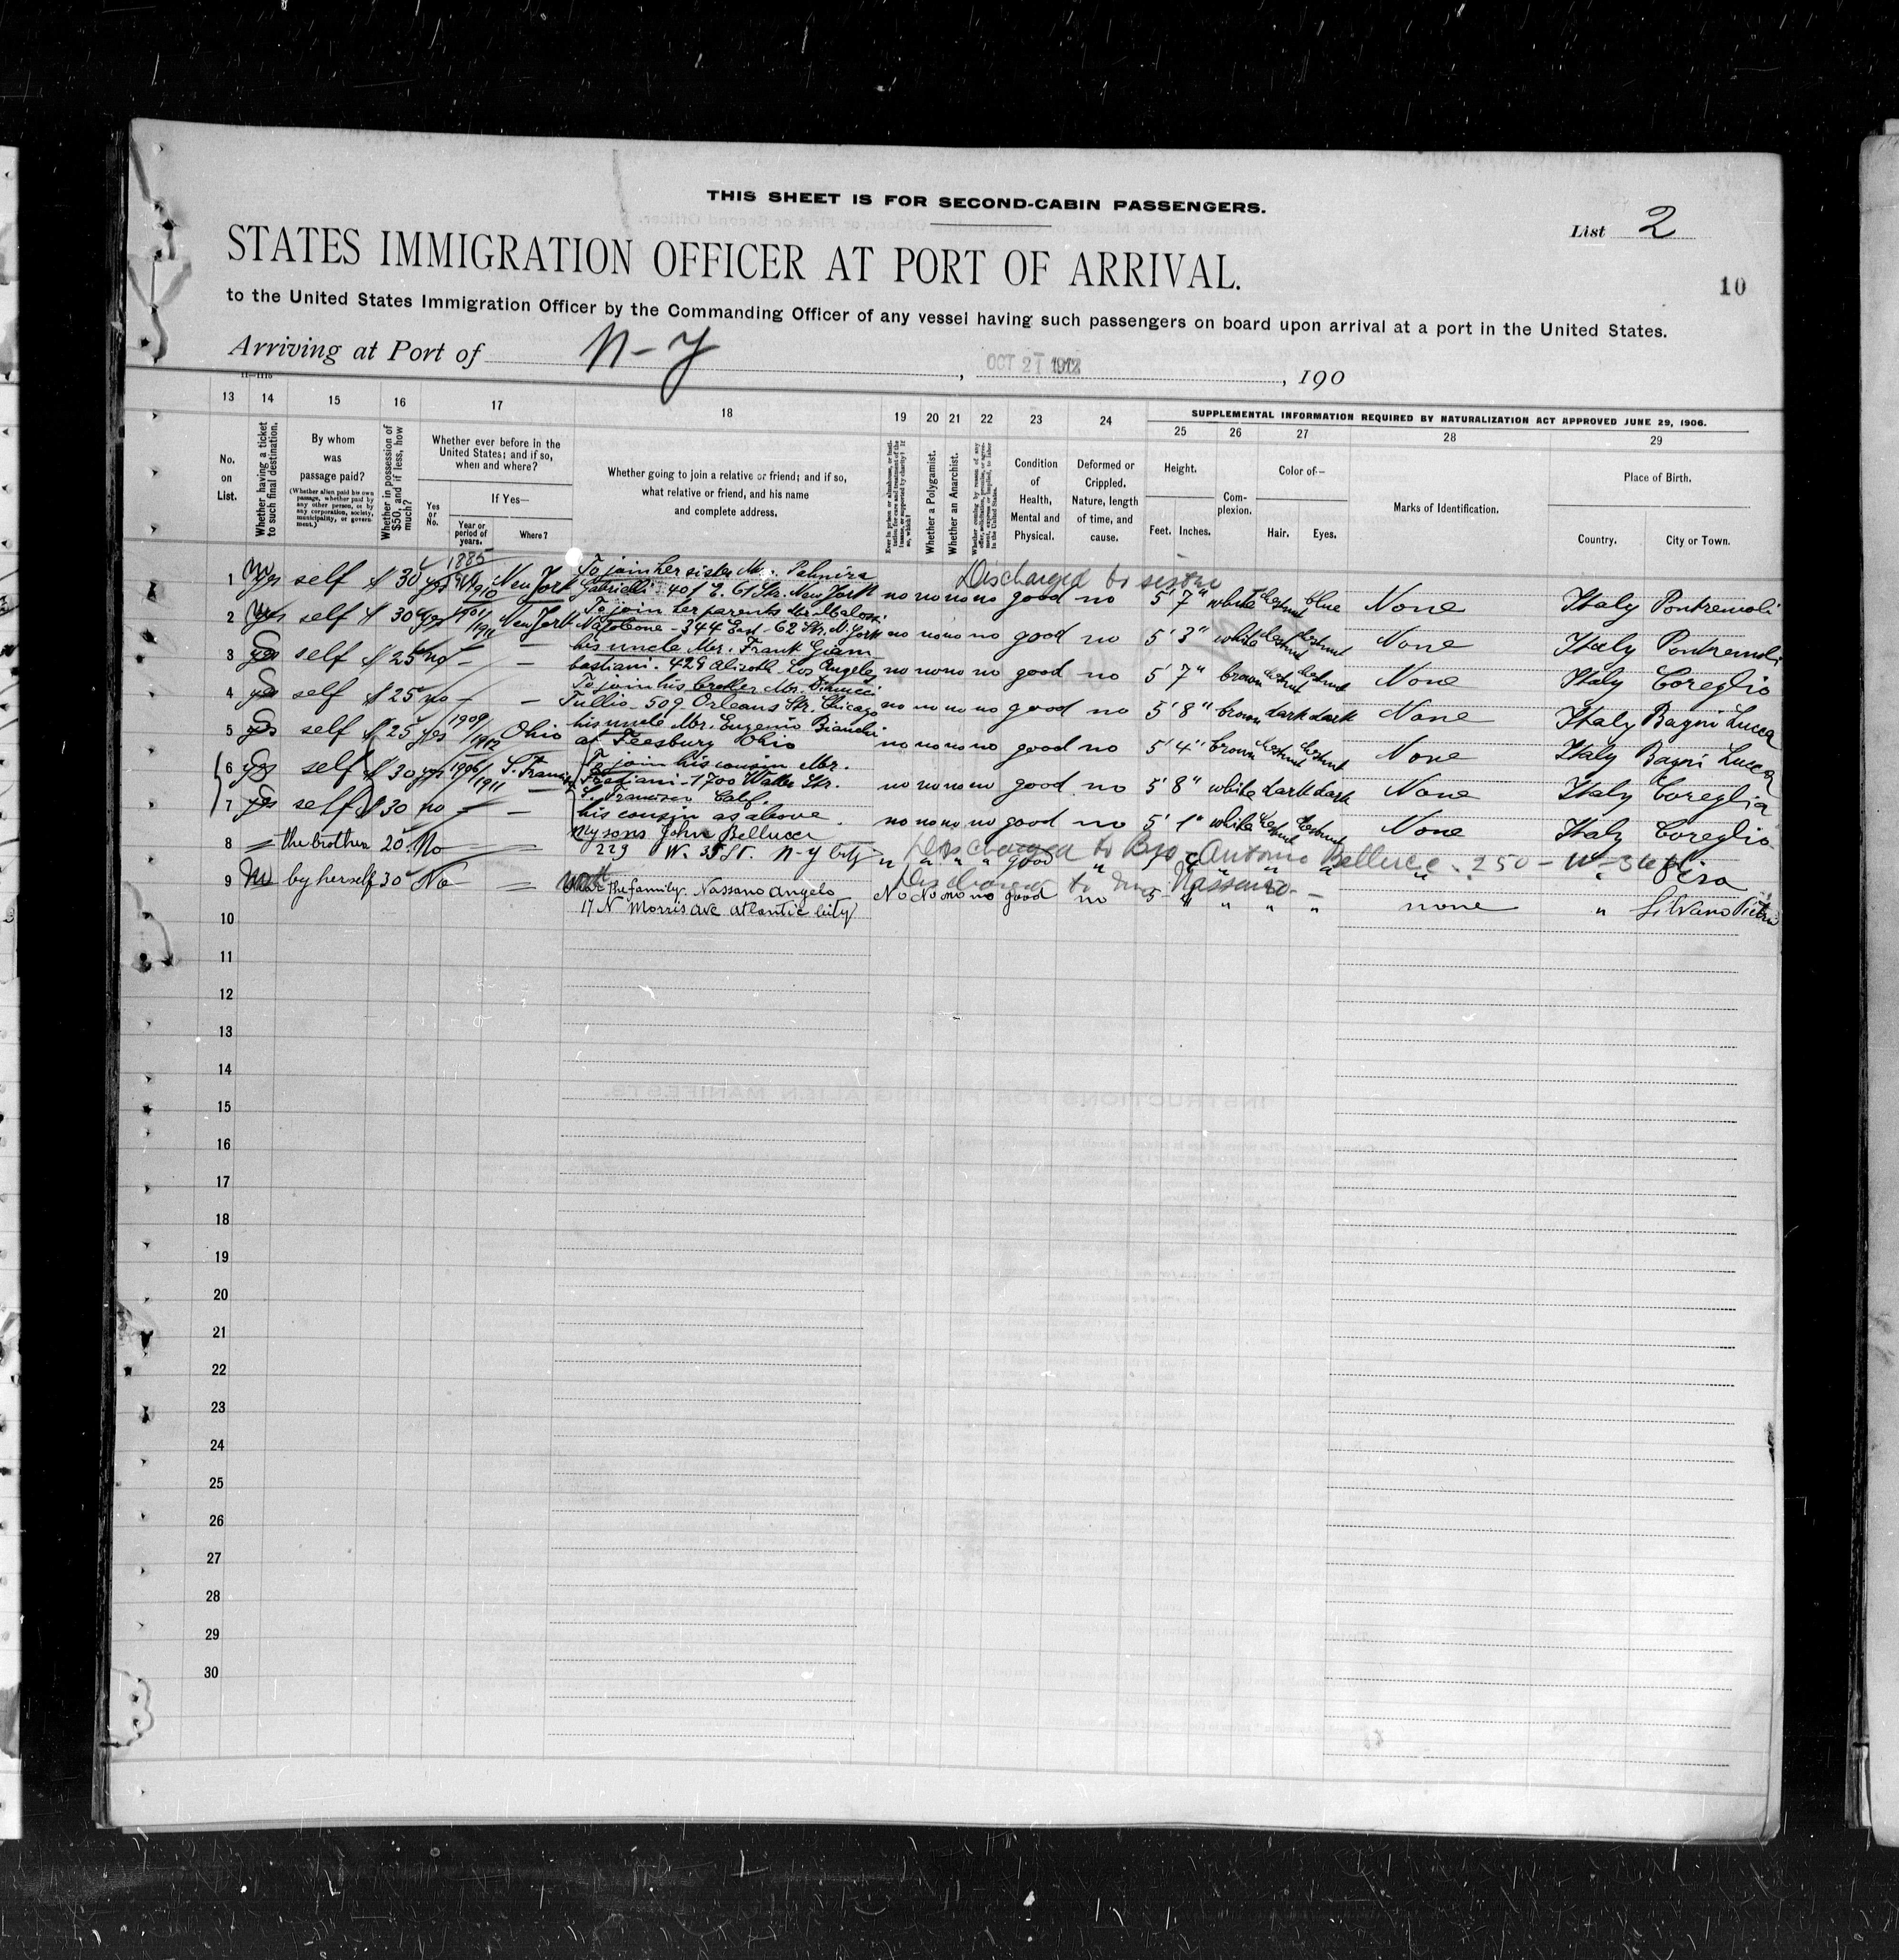 THIS SHEET IS FOR SECOND-CABIN PASSENGERS.
List 2
STATES IMMIGRATION OFFICER AT PORT OF ARRIVAL.
10
to the United States Immigration Officer by the Commanding Officer of any vessel having such passengers on board upon arrival at a port in the United States.
Arriving at Port of N-Y, OCT 21 1912, 190
13 14 15 16 17 18 19 20 21 22 23 24 SUPPLEMENTAL INFORMATION REQUIRED BY NATURALIZATION ACT APPROVED JUNE 29, 1906.
25 26 27 28 29
No. on List.
Whether having a ticket to such final destination.
By whom was passage paid?
(Whether alien paid his own passage, whether paid by any other person, or by any corporation, society, municipality, or government.)
Whether in possession of $50, and if less, how much?
Whether ever before in the United States; and if so, when and where?
Yes or No.
If Yes—
Year or period of years.
Where?
Whether going to join a relative or friend; and if so, what relative or friend, and his name and complete address.
Whether a Polygamist.
Whether an Anarchist.
Condition of Health, Mental and Physical.
Deformed or Crippled. Nature, length of time, and cause.
Height.
Feet. Inches.
Complexion.
Color of—
Hair. Eyes.
Marks of Identification.
Place of Birth.
Country. City or Town.
1885
To join her sister Mr. Palmira
Discharged to sister
1 yes self $ 30 yes 1910 New York Gabrielli 401 E. 61 Str. New York no no no no good no 5' 7" white chestnut blue None Italy Pontremoli
To join her parents Mr. Malossi
2 yes self $ 30 yes 1901/1911 New York Napoleone - 344 East - 62 Str. N. York no no no no good no 5' 3" white chestnut chestnut None Italy Pontremoli
his uncle Mr. Frank Giam
3 yes self $ 25 no - - bastiani. 429 Los Angeles no no no no good no 5' 7" brown chestnut chestnut None Italy Coreglia
To join his brother Mr.
4 yes self $ 25 no - - Tullio - 509 Orleans Str. Chicago no no no no good no 5' 8" brown dark dark None Italy Bagni Lucca
his uncle Mr. Eugenio Bianchi
5 yes self $ 25 yes 1909/1912 Ohio at Feesbury Ohio no no no no good no 5' 4" brown chestnut chestnut None Italy Bagni Lucca
To join his cousin Mr.
6 yes self $ 30 yes 1906/1911 S. Francisco Bastiani - 1700 Waller Str. no no no no good no 5' 8" white dark dark None Italy Coreglia
S. Francisco Calif.
7 yes self $ 30 no - - his cousin as above. no no no no good no 5' 1" white chestnut chestnut None Italy Coreglia
my sons John Bellucci
8 = the brother 20. No = 229 W. 35 St. N-Y City " " " " good " Pisa
Discharged to Bro - Antonio Bellucci. 250 - W - 36 St
9 by herself 30 No = the family. Nassano Angelo No No no no good no 5 - " " " none " Silvano Pietra
Discharged to Nassano -
17 N Morris ave atlantic city
10
11
12
13
14
15
16
17
18
19
20
21
22
23
24
25
26
27
28
29
30